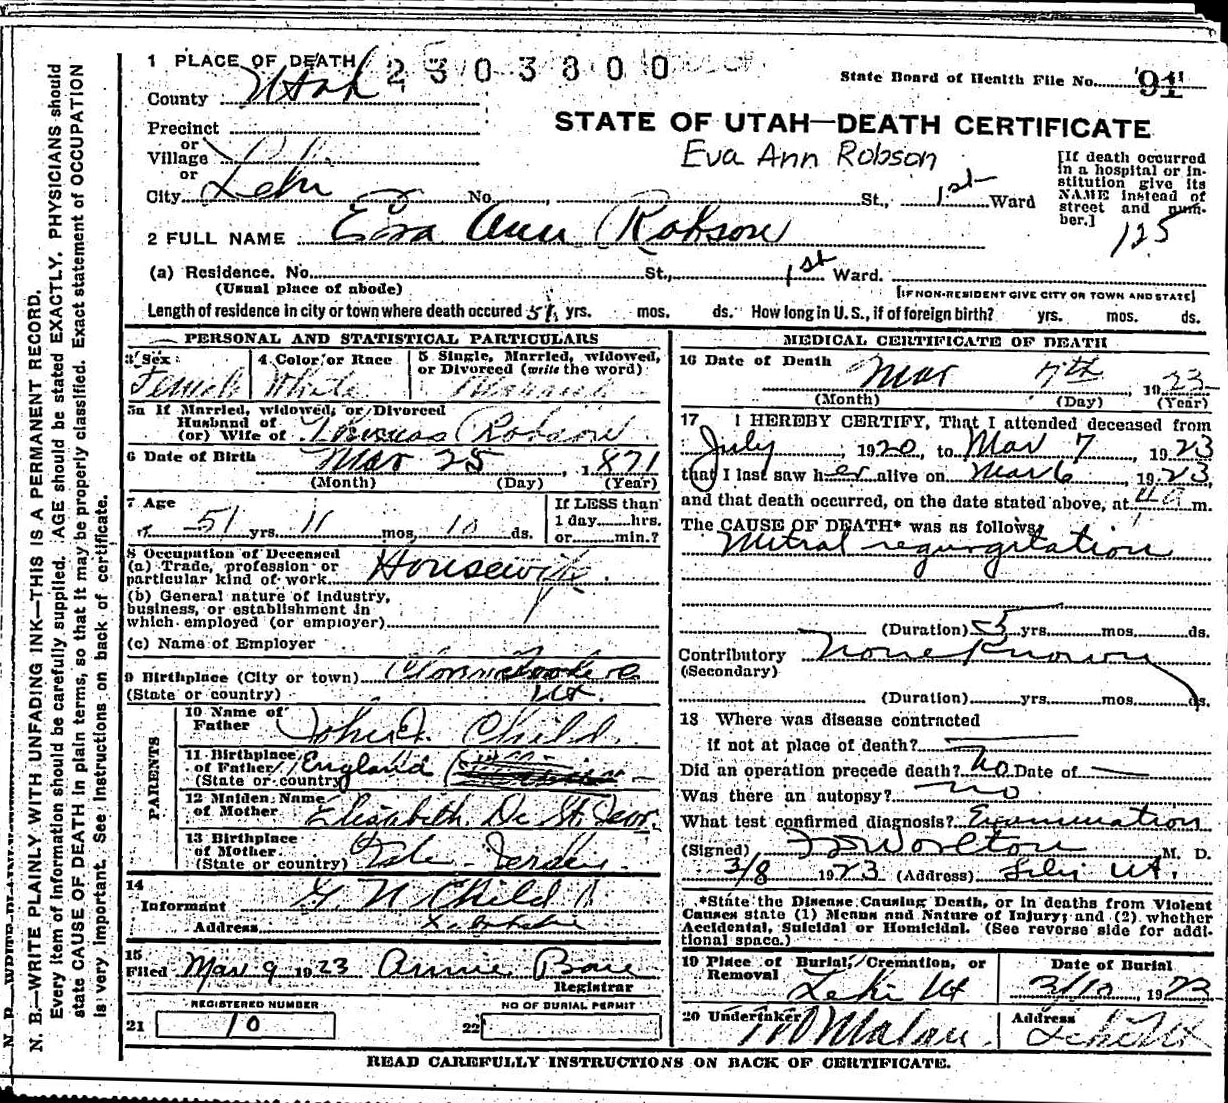 N. B.—WRITE PLAINLY WITH UNFADING INK—THIS IS A PERMANENT RECORD.
Every item of information should be carefully supplied. AGE should be stated EXACTLY. PHYSICIANS should
state CAUSE OF DEATH in plain terms, so that it may be properly classified. Exact statement of OCCUPATION
is very important. See instructions on back of certificate.
1 PLACE OF DEATH
2303300
State Board of Health File No. 91
County Utah
STATE OF UTAH—DEATH CERTIFICATE
Precinct
or
Village
or
Eva Ann Robson
[If death occurred
in a hospital or in-
stitution give its
NAME instead of
street and num-
ber.]
125
City Lehi No. , St., 1st Ward
2 FULL NAME Eva Ann Robson
(a) Residence. No. St., 1st Ward.
(Usual place of abode)
[IF NON-RESIDENT GIVE CITY OR TOWN AND STATE]
Length of residence in city or town where death occured 51 yrs. mos. ds. How long in U.S., if of foreign birth? yrs. mos. ds.
PERSONAL AND STATISTICAL PARTICULARS
3 Sex
Female
4 Color or Race
White
5 Single, Married, widowed,
or Divorced (write the word)
Married
5a If Married, widowed, or Divorced
Husband of
(or) Wife of Thomas Robson
6 Date of Birth Mar 25, 1871
(Month) (Day) (Year)
7 Age
51 yrs. 11 mos. 10 ds.
If LESS than
1 day hrs.
or min.?
8 Occupation of Deceased
(a) Trade, profession or
particular kind of work Housewife
(b) General nature of industry,
business, or establishment in
which employed (or employer)
(c) Name of Employer
9 Birthplace (City or town)
(State or country) Ut.
PARENTS
10 Name of
Father John J. Child
11 Birthplace
of Father England
(State or country)
12 Maiden Name
of Mother Elizabeth De St. Jeor
13 Birthplace
of Mother
(State or country) Isle Jersey
14
Informant G N Child
Address
15
Filed Mar 9 1923 Annie
Registrar
REGISTERED NUMBER
21 10
NO OF BURIAL PERMIT
22
MEDICAL CERTIFICATE OF DEATH
16 Date of Death
Mar 7th, 1923
(Month) (Day) (Year)
17 I HEREBY CERTIFY, That I attended deceased from
July, 1920, to Mar 7, 1923
that I last saw her alive on Mar 6, 1923,
and that death occurred, on the date stated above, at 4 a m.
The CAUSE OF DEATH* was as follows:
Mitral regurgitation
(Duration) 5 yrs. mos. ds.
Contributory None Known
(Secondary)
(Duration) yrs. mos. ds.
18 Where was disease contracted
if not at place of death?
Did an operation precede death? No Date of
Was there an autopsy? no
What test confirmed diagnosis? Examination
(Signed) Worlton M. D.
3/8 1923 (Address) Lehi Ut.
*State the Disease Causing Death, or in deaths from Violent
Causes state (1) Means and Nature of Injury; and (2) whether
Accidental, Suicidal or Homicidal. (See reverse side for addi-
tional space.)
19 Place of Burial, Cremation, or
Removal
Lehi Ut
Date of Burial
3/10, 1923
20 Undertaker
Address
Lehi Ut
READ CAREFULLY INSTRUCTIONS ON BACK OF CERTIFICATE.